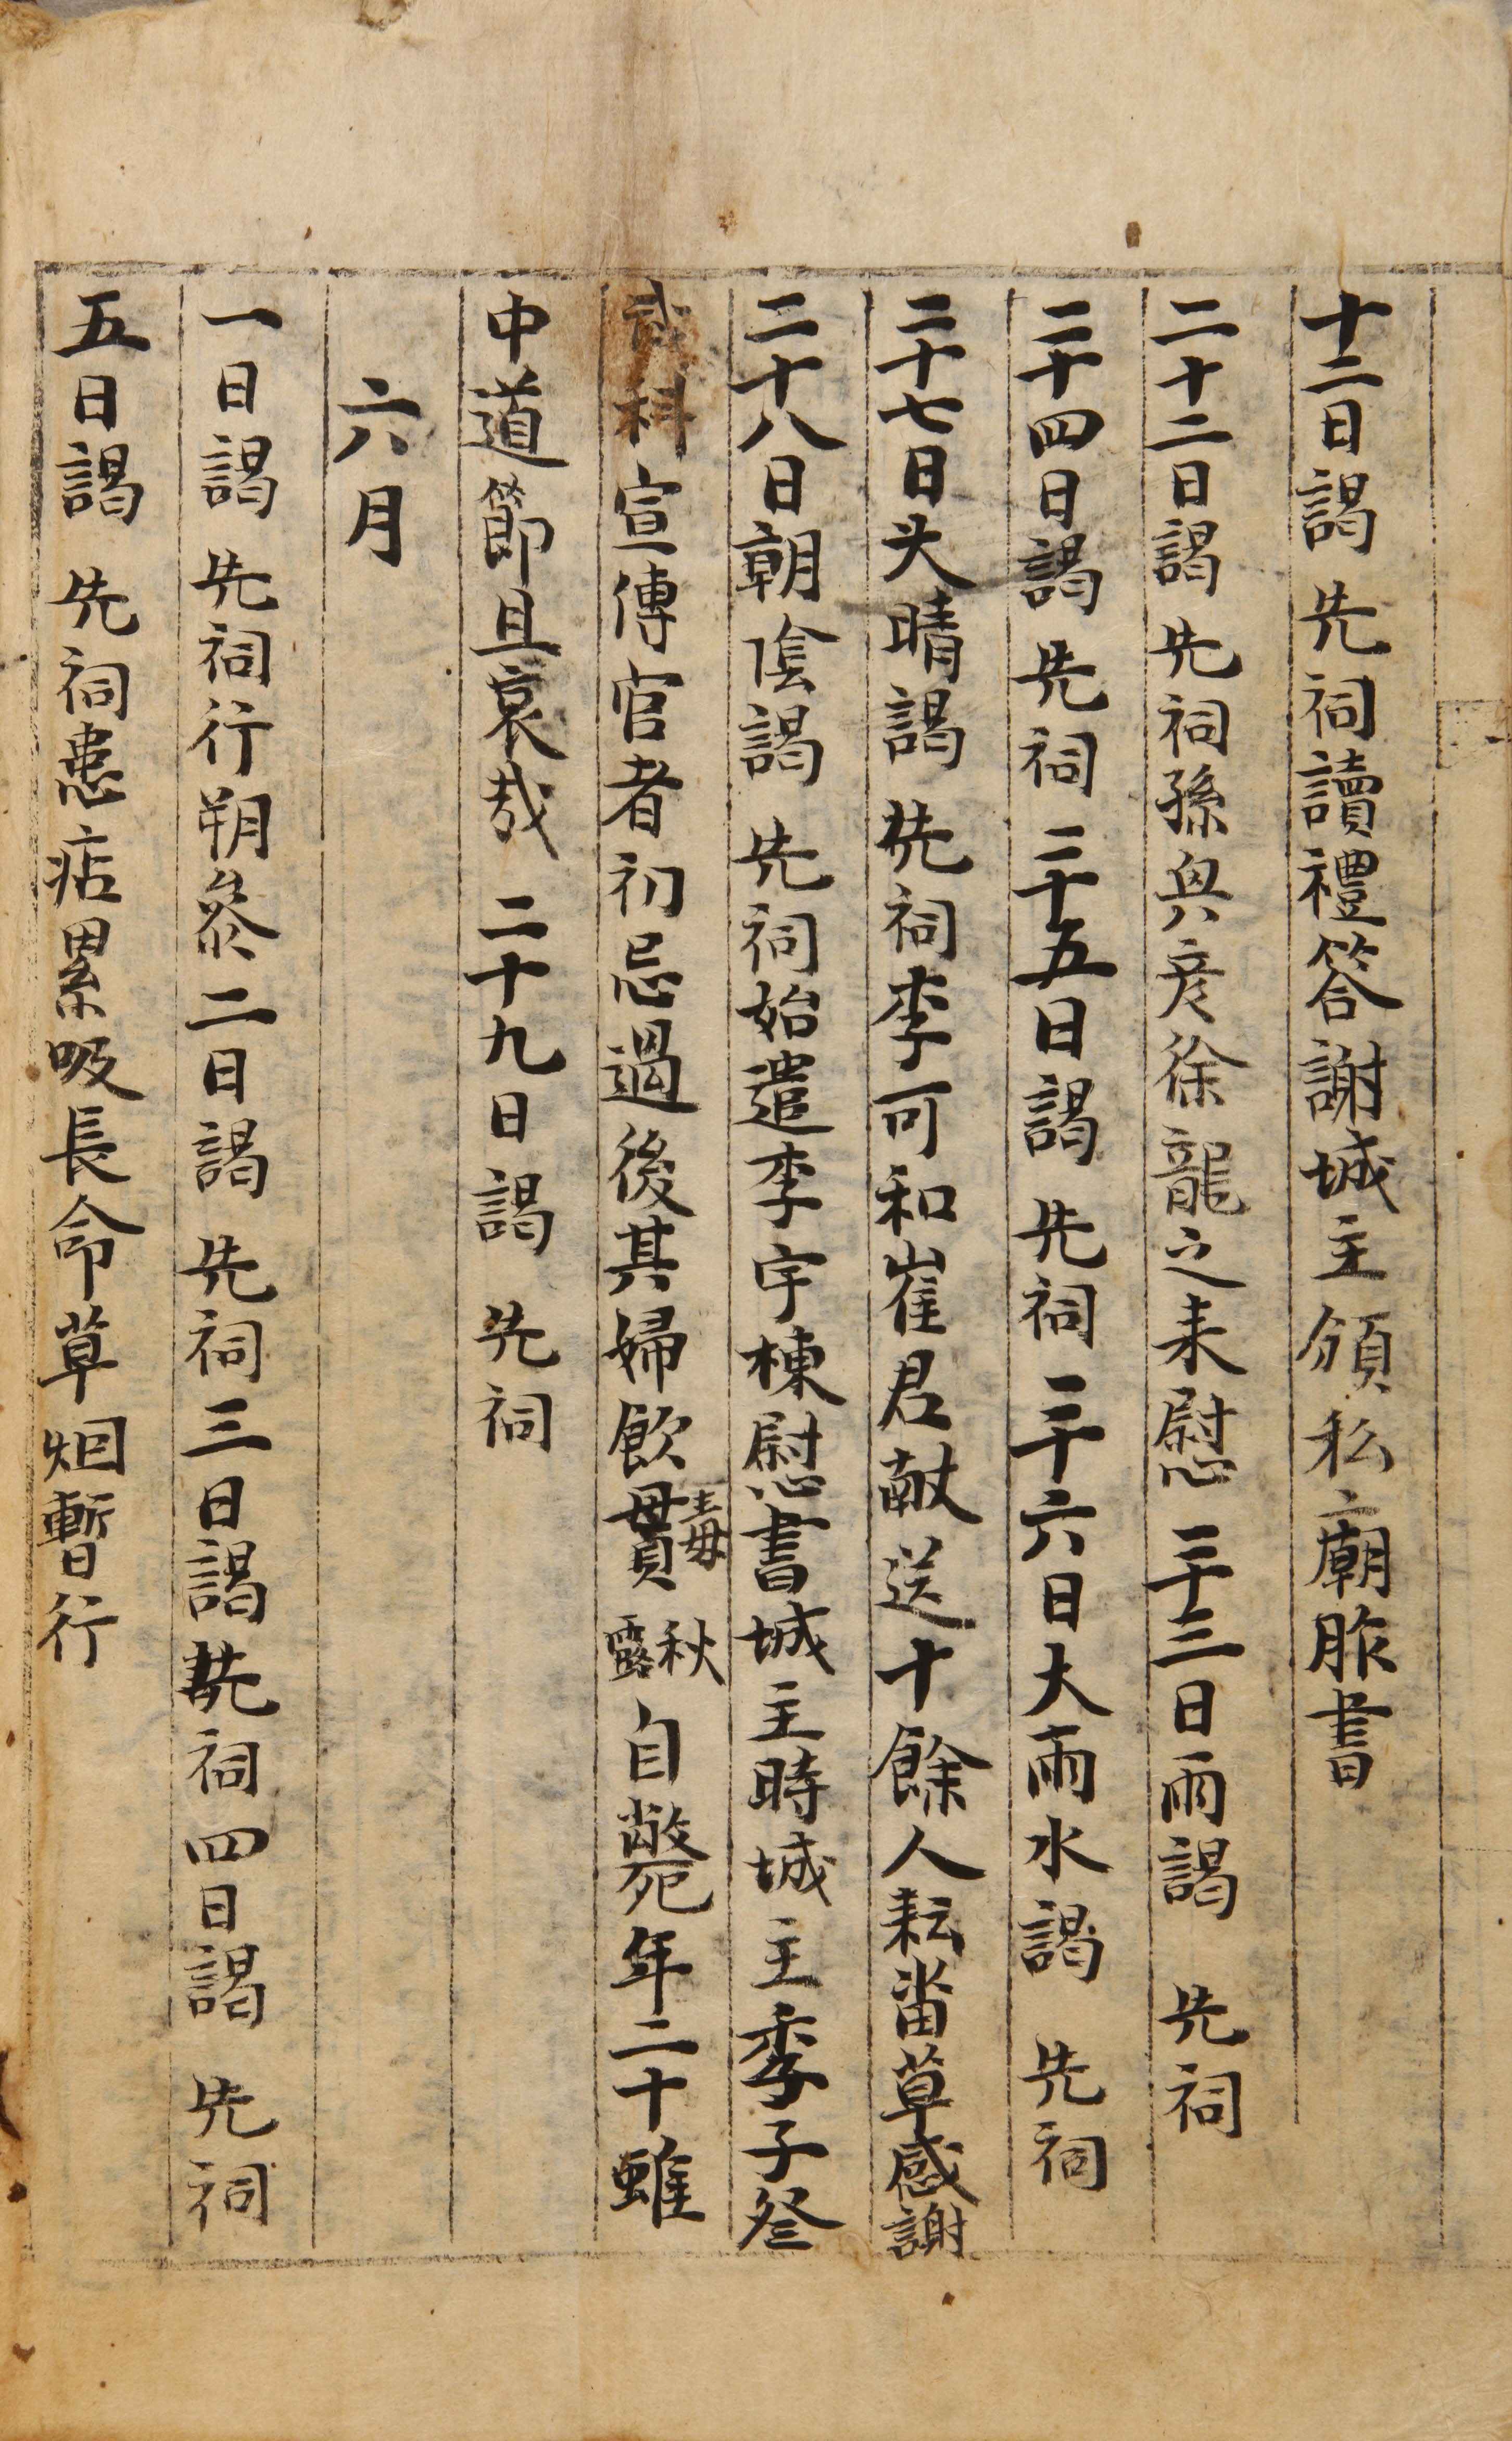 十二日謁 先祠讀禮答謝城主頒私廟胙書
二十二日謁 先祠孫與彦徐龍之来慰 二十三日雨謁 先祠
二十四日謁 先祠 二十五日謁 先祠 二十六日大雨水謁 先祠
二十七日大晴謁 先祠李可和崔君敵送十餘人耘畓草感謝
二十八日朝陰謁 先祠始遣李宇棟慰書城主時城主季子登
武科宣傳官者初忌過後其婦飲毒實秋露自斃年二十雖
中道節且哀哉 二十九日謁 先祠
六月
一日謁 先祠行朔叅二日謁 先祠三日謁 先祠四日謁 先祠
五日謁 先祠患痁累吸長命草烟暫行